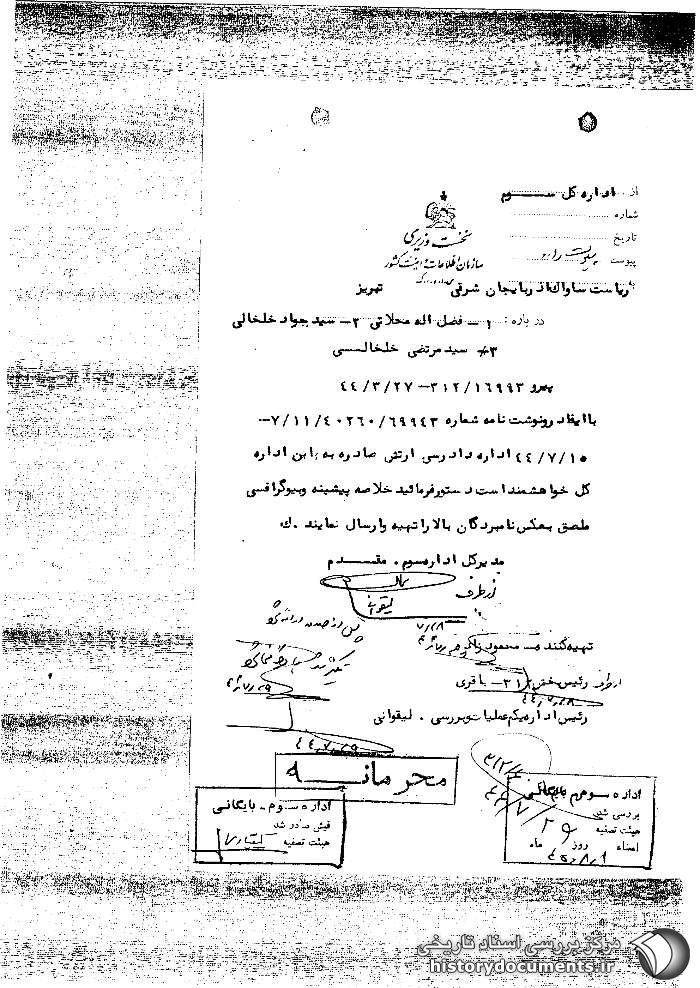 از اداره کل ســـوم
شماره
تاریخ
پیوست
نخست وزیری
سازمان اطلاعات و امنیت کشور
به ریاست ساواک آذربایجان شرقی تبریز
درباره : ۱- فضل اله محلاتی ۲- سید جواد خلخالی
۳- سید مرتضی خلخالـــی
پیرو ۳۱۲/۱۶۹۹۳ – ۴۴/۳/۲۷
با ایفاد رونوشت نامه شماره ۷/۱۱/۴۰۲۶۰/۶۹۹۴۳ –
۴۴/۷/۱۵ اداره دادرسی ارتش صادره به این اداره
کل خواهشمند است دستور فرمائید خلاصه پیشینه و بیوگرافـــی
ملصق بعکس نامبردگان بالا را تهیه و ارسال نمایند . ک
مدیرکل اداره سوم . مقــــدم
از طرف
تهیه کننده – محمود
از طرف رئیس بخش ۳۱۲ – باقری
۴۴/۷/۲۸
رئیس اداره یکم عملیات و بررسی . لیقوانی
۴۴/۷/۲۹
محرمانــــه
اداره ســوم – بایگانــی
فیش صادر شد
هیئت تصفیه
اداره سوم بایگانــی
بررسی شد
هیئت تصفیه
روز ماه
امضاء
۴۵/۸/۱
مرکز بررسی اسناد تاریخی
historydocuments.ir